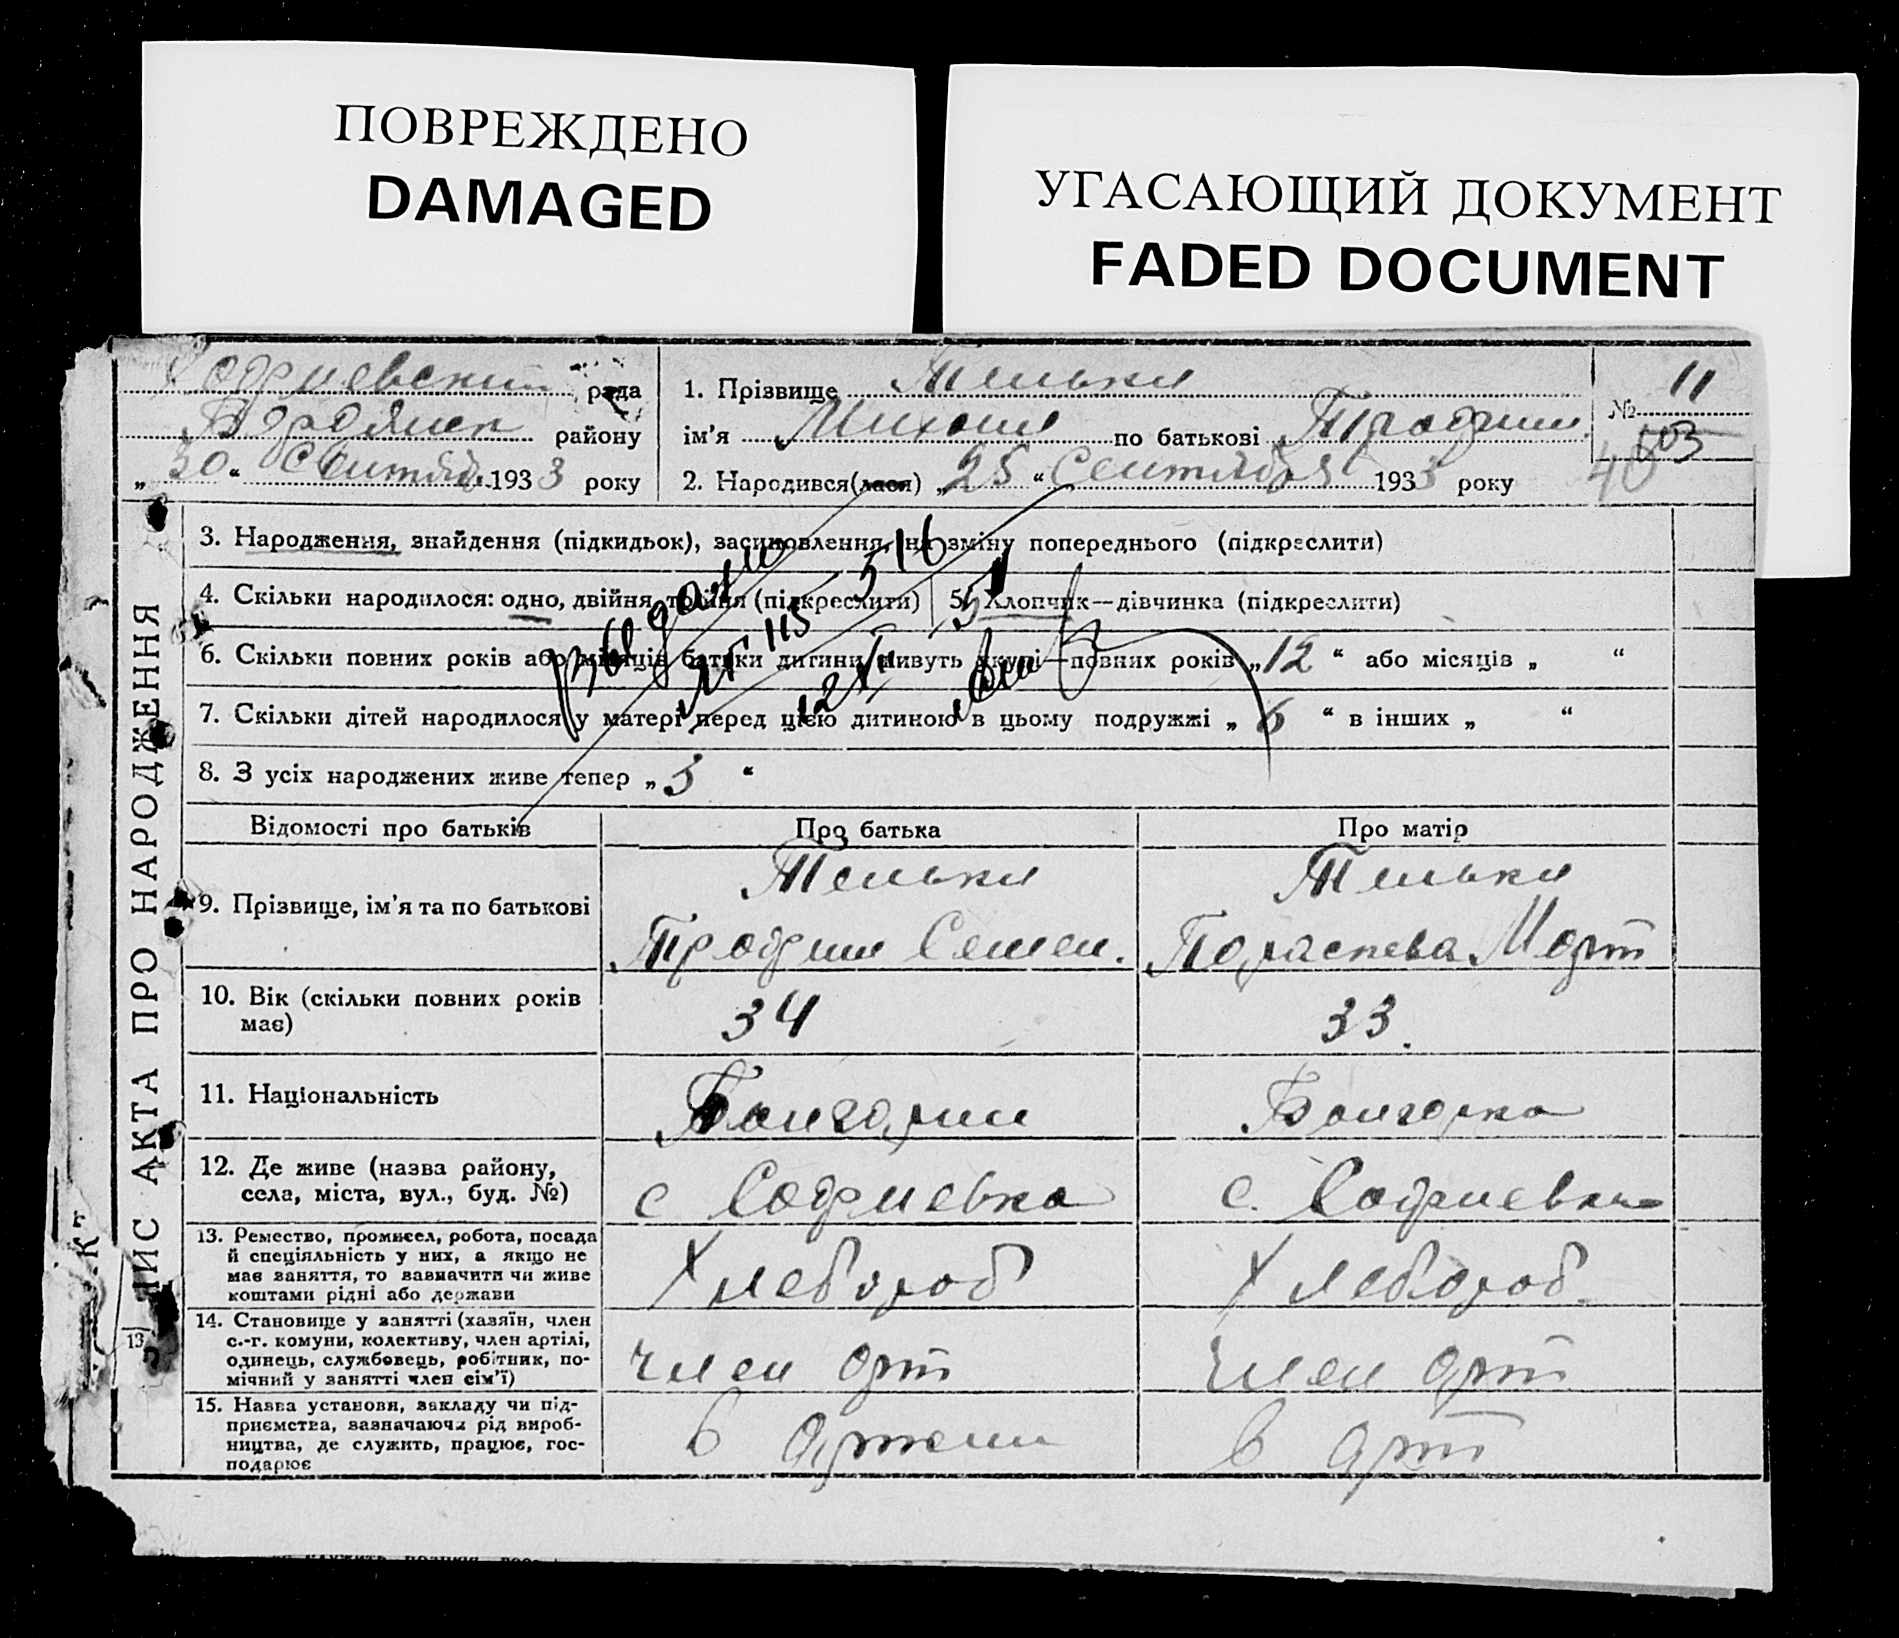 ПОВРЕЖДЕНО
DAMAGED
УГАСАЮЩИЙ ДОКУМЕНТ
FADED DOCUMENT
Софиевский рада
Бердянск району
„ 30 “ Сентяб. 1933 року
1. Прізвище
ім'я Михаил по батькові Трофим.
2. Народився(лася) „ 25 “ Сентября 1933 року
№ 11
503
40
ПИС АКТА ПРО НАРОДЖЕННЯ
3. Народження, знайдення (підкидьок), засиновлення, на зміну попереднього (підкреслити)
4. Скільки народилося: одно, двійня, трійня (підкреслити)
5. Хлопчик—дівчинка (підкреслити)
6. Скільки повних років або місяців батьки дитини живуть вкупі—повних років „ 12 “ або місяців „ “
7. Скільки дітей народилося у матері перед цією дитиною в цьому подружжі „ 6 “ в інших „ “
8. З усіх народжених живе тепер „ 3 “
Відомості про батьків
Про батька
Про матір
9. Прізвище, ім'я та по батькові
Трофим Семен.
10. Вік (скільки повних років
має)
34
33.
11. Національність
Болгарин
Болгарка
12. Де живе (назва району,
села, міста, вул., буд. №)
с Софиевка
с. Софиевка
13. Ремество, промисел, робота, посада
й спеціяльність у них, а якщо не
має заняття, то зазначити чи живе
коштами рідні або держави
Хлебороб
Хлебороб
14. Становище у занятті (хазяїн, член
с.-г. комуни, колективу, член артілі,
одинець, службовець, робітник, по-
мічний у занятті член сім'ї)
член арт
член арт
15. Назва установи, закладу чи під-
приємства, зазначаючи рід вироб-
ництва, де служить, працює, гос-
подарює
в артели
в арт